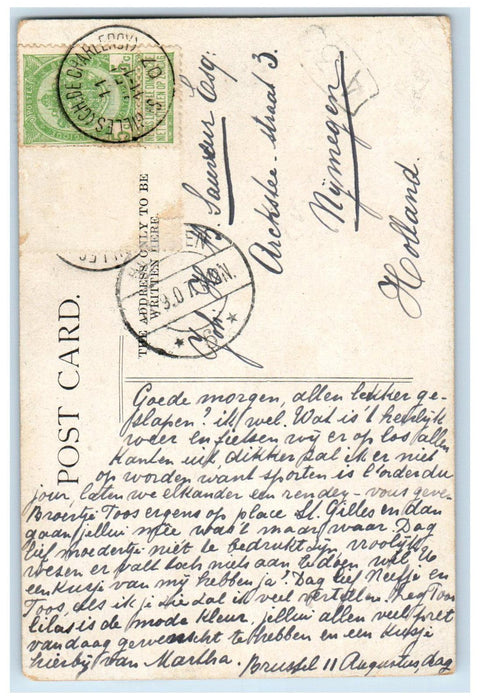 POST CARD.
THE ADDRESS ONLY TO BE
WRITTEN HERE.
GILLES (CH. DE CHARLEROI)
Sauveur Esq:
straat 3.
Nijmegen
Holland.
Goede morgen, allen lekker ge-
slapen? ik wel. Wat is 't heerlijk
weer en fietsen wij er op los, allen
kanten uit, dikker zal ik er niet
op worden want sporten is l'ordre du
jour, laten we elkander een rendez-vous geven
Broertje Toos ergens op place St. Gilles en dan
gaan jellui mee was 't maar waar. Dag
lief moedertje niet te bedrukt zijn, vroolijk
wesen er valt toch niets aan te doen wil U
een kusje van mij hebben ja? Dag lief Neefje en
Toos, als ik je zie zal ik veel vertellen. Zeg Toos
lilas is de mode kleur, jellui allen veel pret
vandaag gewenscht te hebben en een kusje
hierbij van Martha. Brussel 11 Augustus, dag